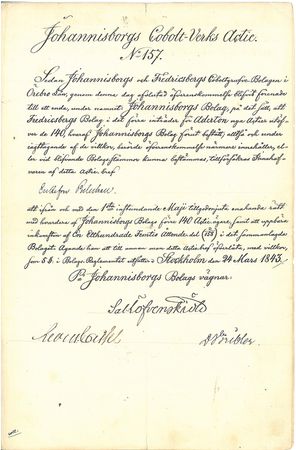 Johannisborgs Cobolt-Verks Actie.
No 157.
Sedan Johannisborgs och Fredriesbergs Coboltgrufve Bolagen i
Örebro Län, genom denna dag afslutad öfverenskommelse blifvit förenade
till ett enda, under namnet Johannisborgs Bolag, på det sätt, att
Fredriesbergs Bolag i det förra inträder för Aderton nya Actier utöf-
ver de 140, hvaraf Johannisborgs Bolag förut bestått, alltså och under
iagttagande af de vilkor, berörde öfverenskommelse närmare innehåller,
eller vid blifvande Bolagsstämmor kunna bestämmas, tillförsäkras Innehafva-
ren af detta Actie bref
att ifrån och med den 1sta instundande Maji tillgodonjuta enahanda rätt
med hvardera af Johannisborgs Bolags förra 140 Actie-ägare, samt att uppbära
inkomsten af En Etthundrade Femtio åttondedel (1/158) i det sammanlagda
Bolaget. Ägande han att till annan man detta Actiebref öfverlåta, med vilkor,
som 5 §. i Bolags-Reglementet utsätter. Stockholm den 24 Mars 1843.
På Johannisborgs Bolags vägnar.